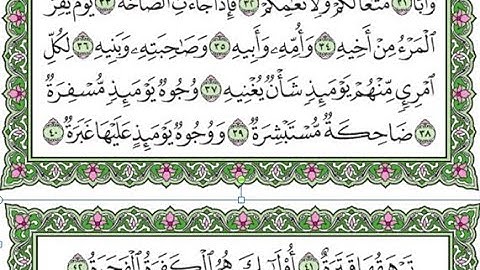 وَأَبًّا ٣١ مَتَاعًا لَّكُمْ وَلِأَنْعَامِكُمْ ٣٢ فَإِذَا جَاءَتِ الصَّاخَّةُ ٣٣ يَوْمَ يَفِرُّ
الْمَرْءُ مِنْ أَخِيهِ ٣٤ وَأُمِّهِ وَأَبِيهِ ٣٥ وَصَاحِبَتِهِ وَبَنِيهِ ٣٦ لِكُلِّ
امْرِئٍ مِّنْهُمْ يَوْمَئِذٍ شَأْنٌ يُغْنِيهِ ٣٧ وُجُوهٌ يَوْمَئِذٍ مُّسْفِرَةٌ
٣٨ ضَاحِكَةٌ مُّسْتَبْشِرَةٌ ٣٩ وَوُجُوهٌ يَوْمَئِذٍ عَلَيْهَا غَبَرَةٌ ٤٠
تَرْهَقُهَا قَتَرَةٌ ٤١ أُولَٰئِكَ هُمُ الْكَفَرَةُ الْفَجَرَةُ ٤٢